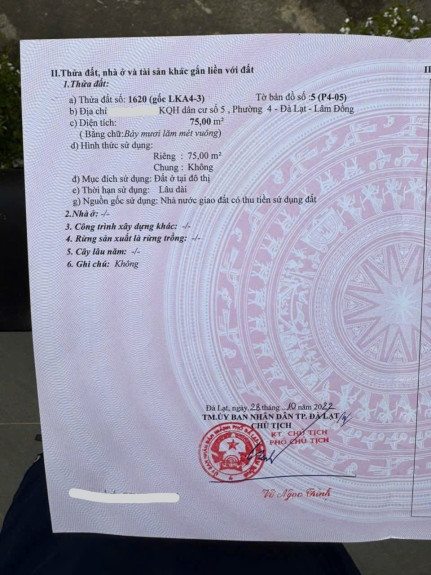 II.Thửa đất, nhà ở và tài sản khác gắn liền với đất
II
1.Thửa đất:
a) Thửa đất số: 1620 (gốc LKA4-3) Tờ bản đồ số :5 (P4-05)
b) Địa chỉ KQH dân cư số 5 , Phường 4 - Đà Lạt - Lâm Đồng
c) Diện tích: 75,00 m²
( Bằng chữ:Bảy mươi lăm mét vuông)
d) Hình thức sử dụng:
Riêng : 75,00 m²
Chung : Không
đ) Mục đích sử dụng: Đất ở tại đô thị
e) Thời hạn sử dụng: Lâu dài
g) Nguồn gốc sử dụng: Nhà nước giao đất có thu tiền sử dụng đất
2.Nhà ở: -/-
3. Công trình xây dựng khác: -/-
4. Rừng sản xuất là rừng trồng: -/-
5. Cây lâu năm: -/-
6. Ghi chú: Không
Đà Lạt, ngày 28 tháng 10 năm 2022
TM.ỦY BAN NHÂN DÂN TP. ĐÀ LẠT
CHỦ TỊCH
KT CHỦ TỊCH
PHÓ CHỦ TỊCH
Võ Ngọc Trình